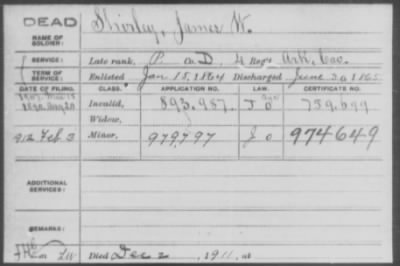 DEAD
NAME OF SOLDIER: Shirley, James W.
SERVICE: Late rank, P. Co. D, 4 Reg't Ark. Cav.
TERM OF SERVICE: Enlisted Jan 15, 1864 Discharged June 30 1865
DATE OF FILING. CLASS. APPLICATION NO. LAW. CERTIFICATE NO.
1890 Aug 20 Invalid, 893.987. 759.699
Widow,
912 Feb 3 Minor, 979797 974649
ADDITIONAL SERVICES:
REMARKS:
Died Dec 2, 1911, at